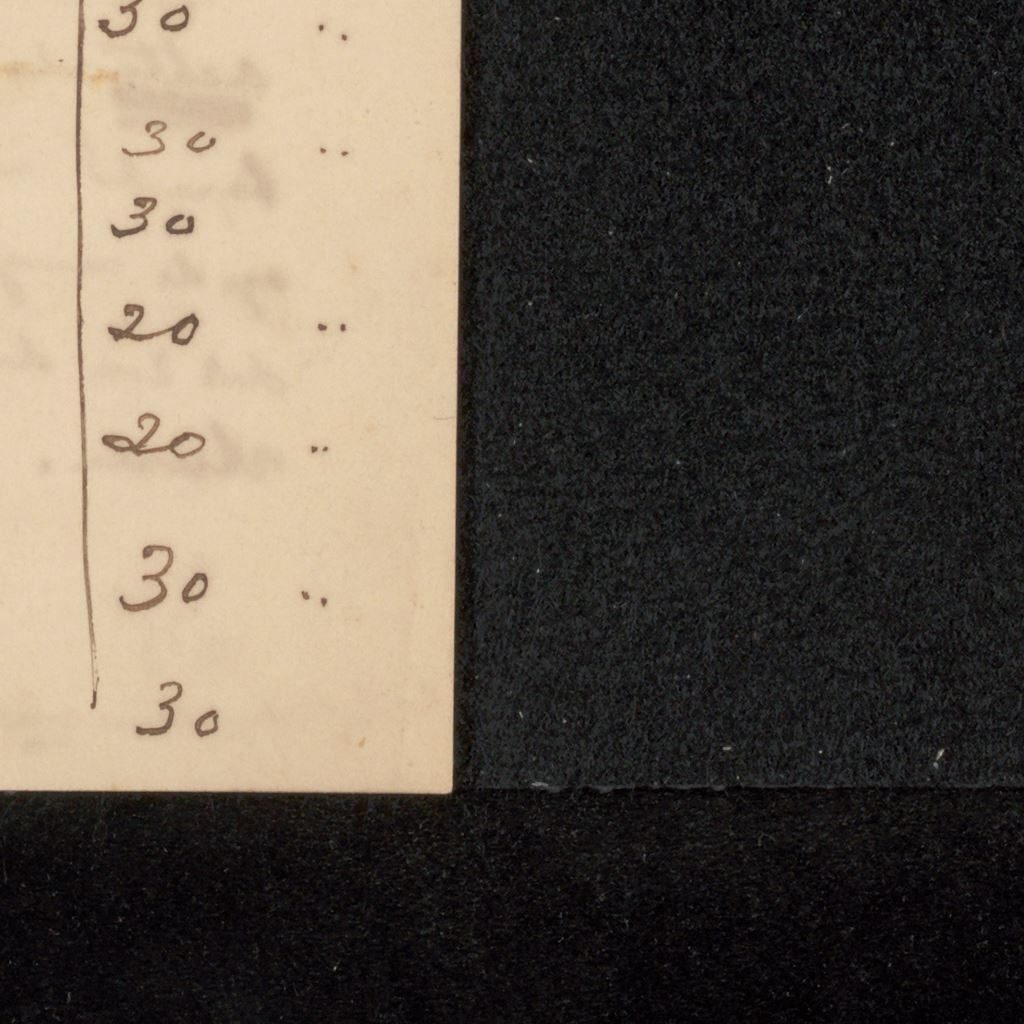 30 ..
30 ..
30
20 ..
20 ..
30 ..
30